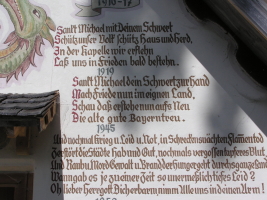 1916-17
Sankt Michael mit Deinem Schwert
Schütz unser Volk schütz Haus und Herd,
In der Kapelle wir erflehn
Laß uns in Frieden bald bestehn.
1919
Sankt Michael dein Schwert zur Hand
Mach Friede nun im eignen Land,
Schau daß erstehe nun aufs Neu
Die alte gute Bayerntreu.
1945
Und nochmal Krieg u. Leid u. Not, in Schreckensnächten Flammentod
Zerstört die Städte Hab und Gut, nochmals vergossen tapfres Blut
Und Raub u. Mord Gewalt u. Brand der Hunger geht durchs ganze Land
Wann gab es je zu einer Zeit so unermeßliches Leid?
Oh lieber Herrgott Dich erbarm, nimm Alle uns in deinen Arm!